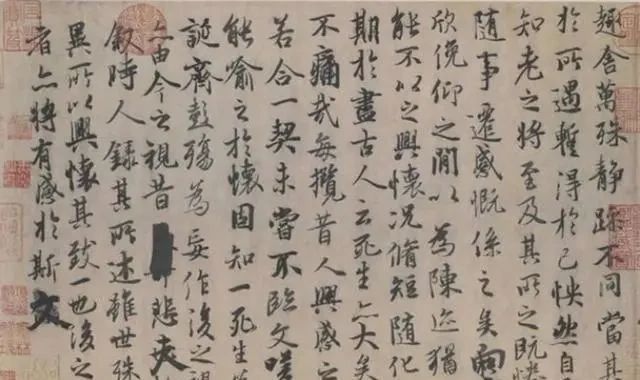 趣舍萬殊静躁不同當其
於所遇暫得於己怏然自
知老之將至及其所之既惓
隨事遷感慨係之矣向
欣俛仰之閒以為陳迹猶
能不以之興懷況脩短隨化
期於盡古人云死生亦大矣
不痛哉每攬昔人興感之
若合一契未嘗不臨文嗟
能喻之於懷固知一死生
誕齊彭殤為妄作後之視
亦由今之視昔悲夫
叙時人錄其所述雖世殊
異所以興懷其致一也後之
者亦將有感於斯文